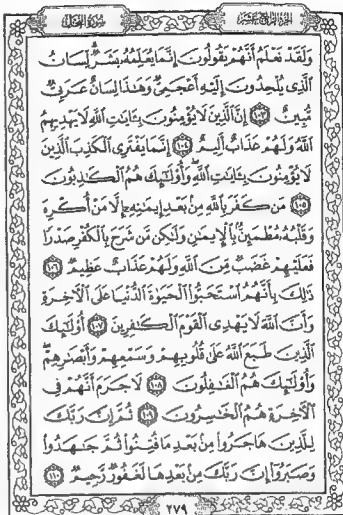 الجزء الرابع عشر
سورة النحل
وَلَقَدْ نَعْلَمُ أَنَّهُمْ يَقُولُونَ إِنَّمَا يُعَلِّمُهُ بَشَرٌ لِّسَانُ
الَّذِى يُلْحِدُونَ إِلَيْهِ أَعْجَمِىٌّ وَهَٰذَا لِسَانٌ عَرَبِىٌّ
مُّبِينٌ ١٠٣ إِنَّ الَّذِينَ لَا يُؤْمِنُونَ بِـَٔايَٰتِ اللَّهِ لَا يَهْدِيهِمُ
اللَّهُ وَلَهُمْ عَذَابٌ أَلِيمٌ ١٠٤ إِنَّمَا يَفْتَرِى الْكَذِبَ الَّذِينَ
لَا يُؤْمِنُونَ بِـَٔايَٰتِ اللَّهِ وَأُو۟لَٰٓئِكَ هُمُ الْكَٰذِبُونَ
١٠٥ مَن كَفَرَ بِاللَّهِ مِنۢ بَعْدِ إِيمَٰنِهِۦٓ إِلَّا مَنْ أُكْرِهَ
وَقَلْبُهُۥ مُطْمَئِنٌّۢ بِالْإِيمَٰنِ وَلَٰكِن مَّن شَرَحَ بِالْكُفْرِ صَدْرًا
فَعَلَيْهِمْ غَضَبٌ مِّنَ اللَّهِ وَلَهُمْ عَذَابٌ عَظِيمٌ ١٠٦
ذَٰلِكَ بِأَنَّهُمُ اسْتَحَبُّوا۟ الْحَيَوٰةَ الدُّنْيَا عَلَى الْءَاخِرَةِ
وَأَنَّ اللَّهَ لَا يَهْدِى الْقَوْمَ الْكَٰفِرِينَ ١٠٧ أُو۟لَٰٓئِكَ
الَّذِينَ طَبَعَ اللَّهُ عَلَىٰ قُلُوبِهِمْ وَسَمْعِهِمْ وَأَبْصَٰرِهِمْ
وَأُو۟لَٰٓئِكَ هُمُ الْغَٰفِلُونَ ١٠٨ لَا جَرَمَ أَنَّهُمْ فِى
الْءَاخِرَةِ هُمُ الْخَٰسِرُونَ ١٠٩ ثُمَّ إِنَّ رَبَّكَ
لِلَّذِينَ هَاجَرُوا۟ مِنۢ بَعْدِ مَا فُتِنُوا۟ ثُمَّ جَٰهَدُوا۟
وَصَبَرُوٓا۟ إِنَّ رَبَّكَ مِنۢ بَعْدِهَا لَغَفُورٌ رَّحِيمٌ ١١٠
٢٧٩